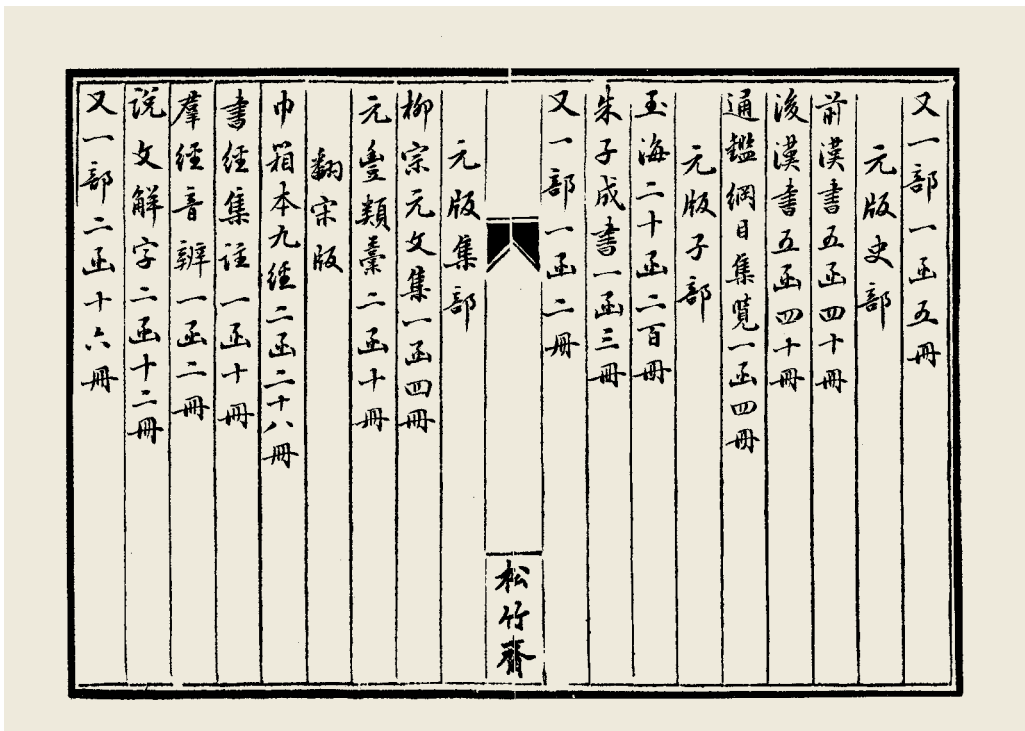 又一部一函五冊
元版史部
前漢書五函四十冊
後漢書五函四十冊
通鑑綱目集覽一函四冊
元版子部
玉海二十函二百冊
朱子成書一函三冊
又一部一函二冊
松竹齋
元版集部
柳宗元文集一函四冊
元豐類藁二函十冊
翻宋版
巾箱本九經二函二十八冊
書經集註一函十冊
羣經音辨一函二冊
說文解字二函十二冊
又一部二函十六冊